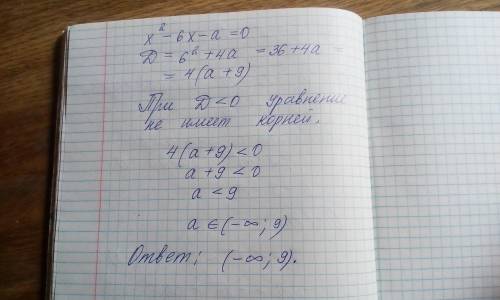 x² - 6x - a = 0
D = 6² + 4a = 36 + 4a =
= 4(a + 9)
При D < 0 уравнение
не имеет корней.
4(a + 9) < 0
a + 9 < 0
a < 9
a ∈ (-∞; 9)
Ответ: (-∞; 9).